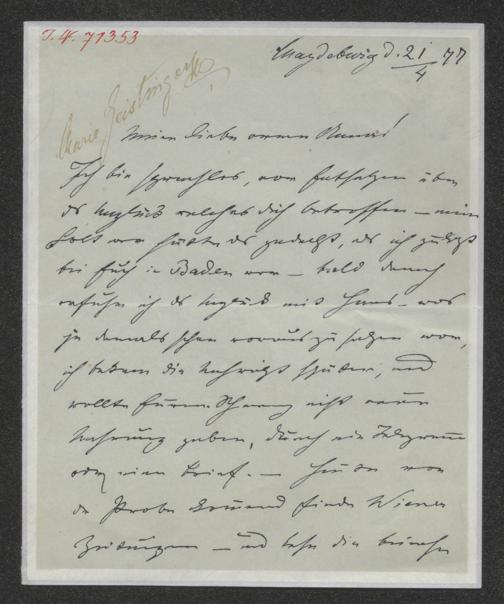 I.N. 71353
Magdeburg d. 21/4 77
Marie Geistinger
Meine liebe arme Mama!
Ich bin sprachlos, vor Entsetzen über
das Unglück welches dich betroffen – mein
Gott wer hätte das gedacht, als ich zuletzt
bei Euch in Baden war – bald danach
erfuhr ich das Unglück mit Hans – was
ja damals schon vorauszusehen war,
ich bekam die Nachricht später, und
wollte Eurem Schmerz nicht neue
Nahrung geben, durch ein Telegramm
oder einen Brief. – Heute von
der Probe kommend finde Wiener
Zeitungen – und lese die